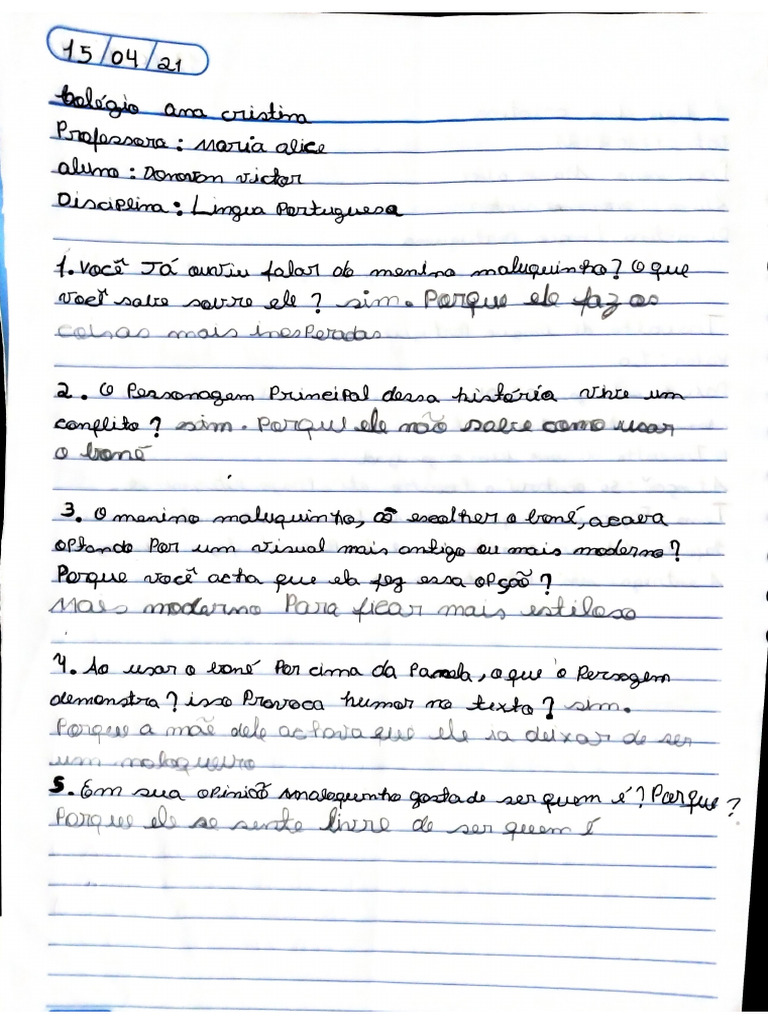 15/04/21
Colégio ana cristina
Professora: Maria alice
aluno: Donovan victor
Disciplina: Lingua Portuguesa
1. Você Já ouviu falar do menino maluquinho? O que
você sabe sobre ele? sim. Porque ele faz as
coisas mais inesperadas
2. O Personagem Principal dessa história vive um
conflito? sim. Porque ele não sabe como usar
o boné
3. O menino maluquinho, ao escolher o boné, acava
optando Por um visual mais antigo ou mais moderno?
Porque você acha que ela fez essa opção?
Mais moderno Para ficar mais estiloso
4. Ao usar o boné Por cima da Panela, o que o Persogem
demonstra? isso Provoca humor no texto? sim.
Porque a mãe dele achava que ele ia deixar de ser
um maloqueiro
5. Em sua opinião maloquinho gosta de ser quem é? Porque?
Porque ele se sente livre de ser quem é